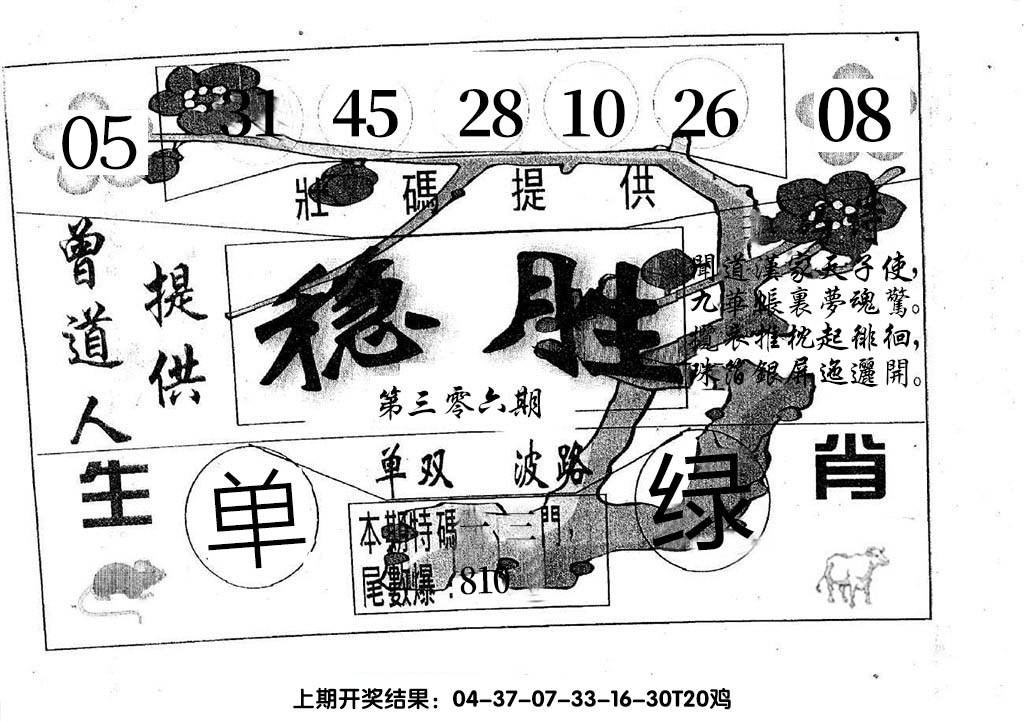 05 31 45 28 10 26 08
壯碼提供
特
曾道人
提供
稳胜
第三零六期
聞道漢家天子使，
九華帳裏夢魂驚。
攬衣推枕起徘徊，
珠箔銀屏迤邐開。
单双 波路
生肖
单
绿
本期特碼一、三門，
尾數爆：810
上期开奖结果：04-37-07-33-16-30T20鸡